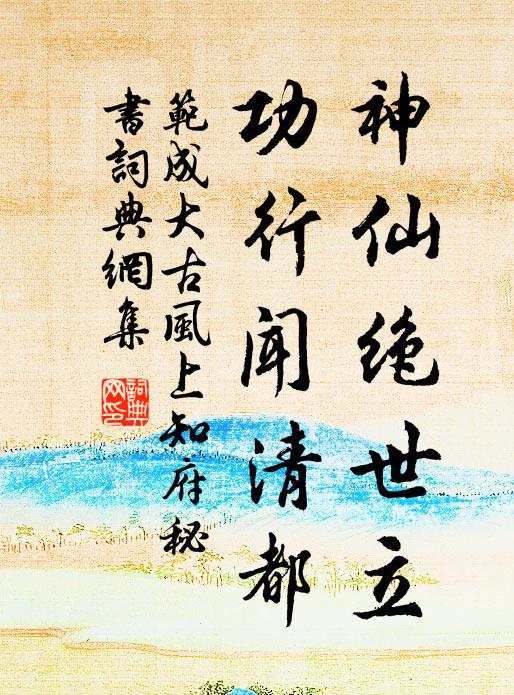 神仙绝世立
功行闻清都
範成大古風上知府秘
書詞典網集
詞典网印